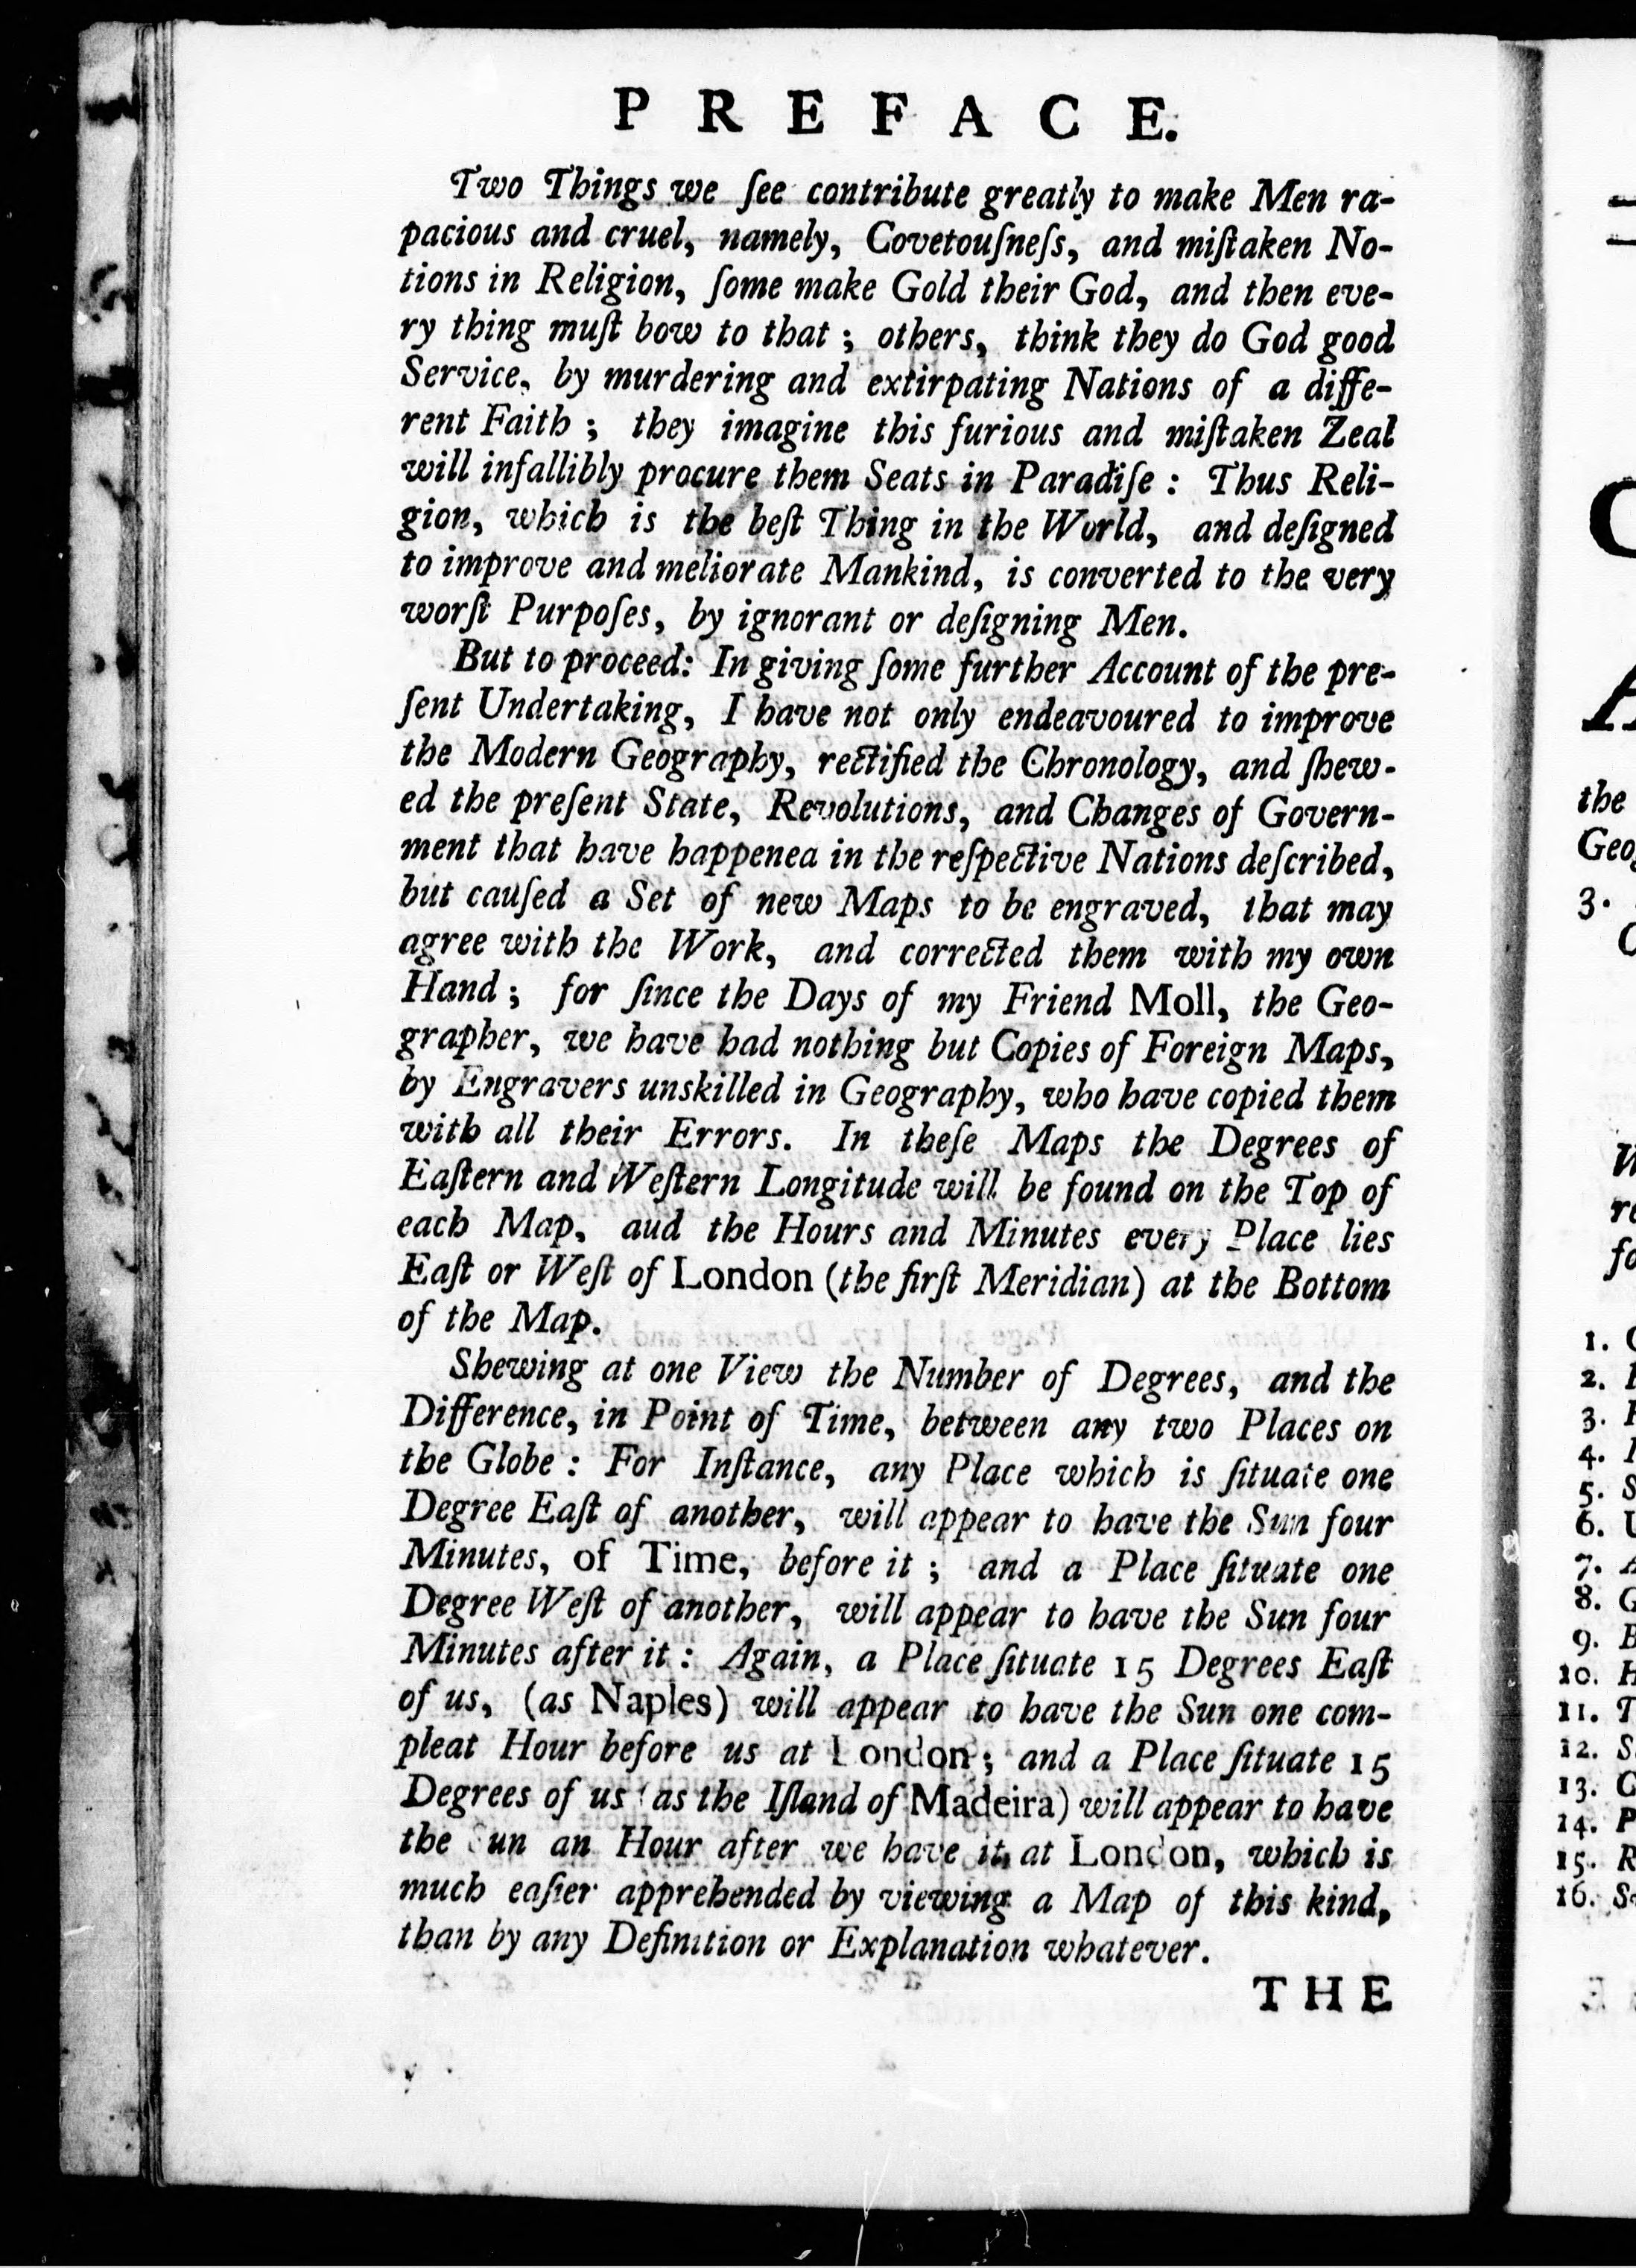 PREFACE.
Two Things we ſee contribute greatly to make Men ra-
pacious and cruel, namely, Covetouſneſs, and miſtaken No-
tions in Religion, ſome make Gold their God, and then eve-
ry thing muſt bow to that; others, think they do God good
Service, by murdering and extirpating Nations of a diffe-
rent Faith; they imagine this furious and miſtaken Zeal
will infallibly procure them Seats in Paradiſe: Thus Reli-
gion, which is the beſt Thing in the World, and deſigned
to improve and meliorate Mankind, is converted to the very
worſt Purpoſes, by ignorant or deſigning Men.
But to proceed: In giving ſome further Account of the pre-
ſent Undertaking, I have not only endeavoured to improve
the Modern Geography, rectified the Chronology, and ſhew-
ed the preſent State, Revolutions, and Changes of Govern-
ment that have happenea in the reſpective Nations deſcribed,
but cauſed a Set of new Maps to be engraved, that may
agree with the Work, and corrected them with my own
Hand; for ſince the Days of my Friend Moll, the Geo-
grapher, we have had nothing but Copies of Foreign Maps,
by Engravers unskilled in Geography, who have copied them
with all their Errors. In theſe Maps the Degrees of
Eaſtern and Weſtern Longitude will be found on the Top of
each Map, aud the Hours and Minutes every Place lies
Eaſt or Weſt of London (the firſt Meridian) at the Bottom
of the Map.
Shewing at one View the Number of Degrees, and the
Difference, in Point of Time, between any two Places on
the Globe: For Inſtance, any Place which is ſituate one
Degree Eaſt of another, will appear to have the Sun four
Minutes, of Time, before it; and a Place ſituate one
Degree Weſt of another, will appear to have the Sun four
Minutes after it: Again, a Place ſituate 15 Degrees Eaſt
of us, (as Naples) will appear to have the Sun one com-
pleat Hour before us at London; and a Place ſituate 15
Degrees of us (as the Iſland of Madeira) will appear to have
the Sun an Hour after we have it, at London, which is
much eaſier apprehended by viewing a Map of this kind,
than by any Definition or Explanation whatever.
THE
the
3.
1.
2.
3.
4.
5.
6.
7.
8.
9.
10.
11.
12.
13.
14.
15.
16.